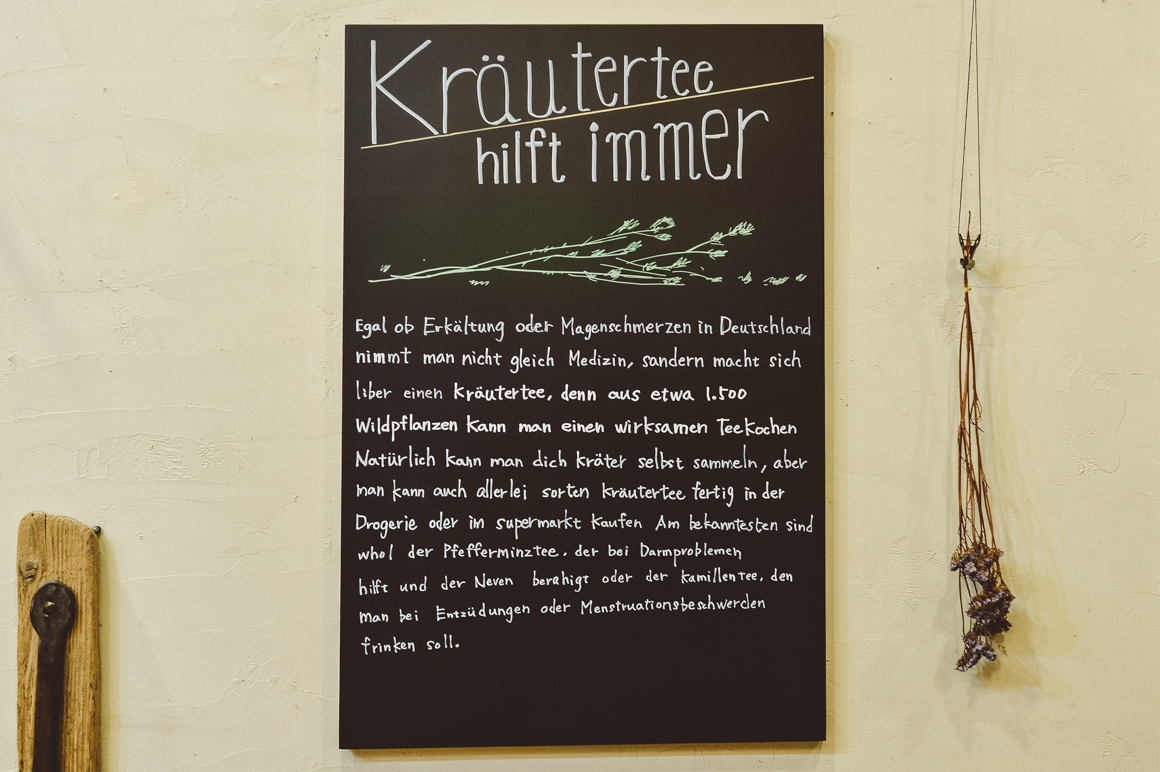 Kräutertee
hilft immer
Egal ob Erkältung oder Magenschmerzen in Deutschland
nimmt man nicht gleich Medizin, sandern macht sich
liber einen Kräutertee, denn aus etwa 1.500
Wildpflanzen kann man einen wirksamen Teekochen
Natürlich kann man dich kräter selbst sammeln, aber
man kann auch allerlei sorten kräutertee fertig in der
Drogerie oder im supermarkt kaufen Am bekanntesten sind
whol der Pfefferminztee. der bei Darmproblemen
hilft und der Neven berahigt oder der kamillentee. den
man bei Entzüdungen oder Menstruationsbeschwerden
frinken soll.